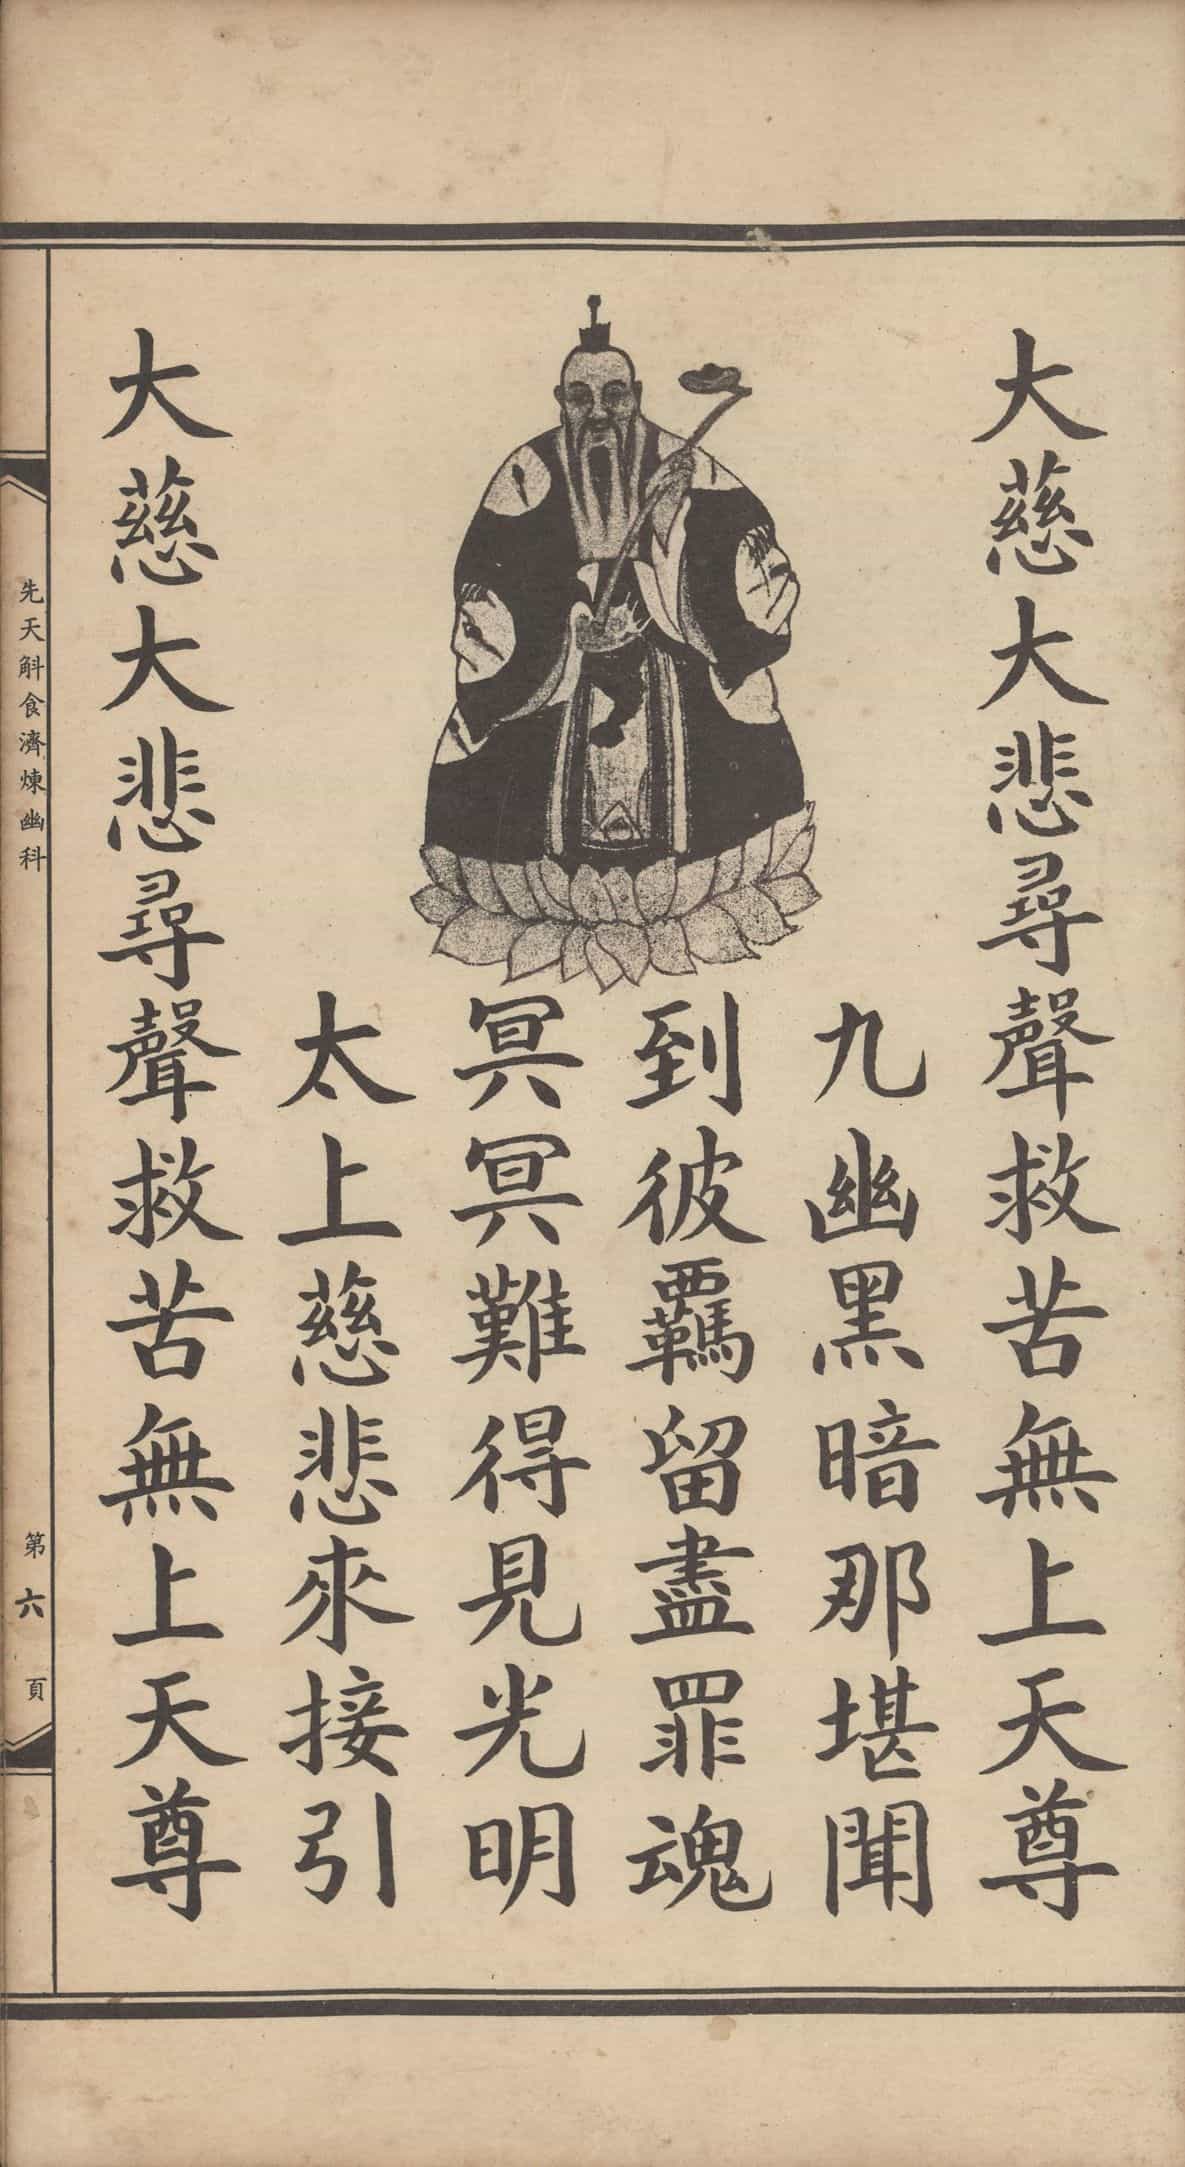 大慈大悲尋聲救苦無上天尊
九幽黑暗那堪聞
到彼羈留盡罪魂
冥冥難得見光明
太上慈悲來接引
大慈大悲尋聲救苦無上天尊
先天斛食濟煉幽科
第六頁